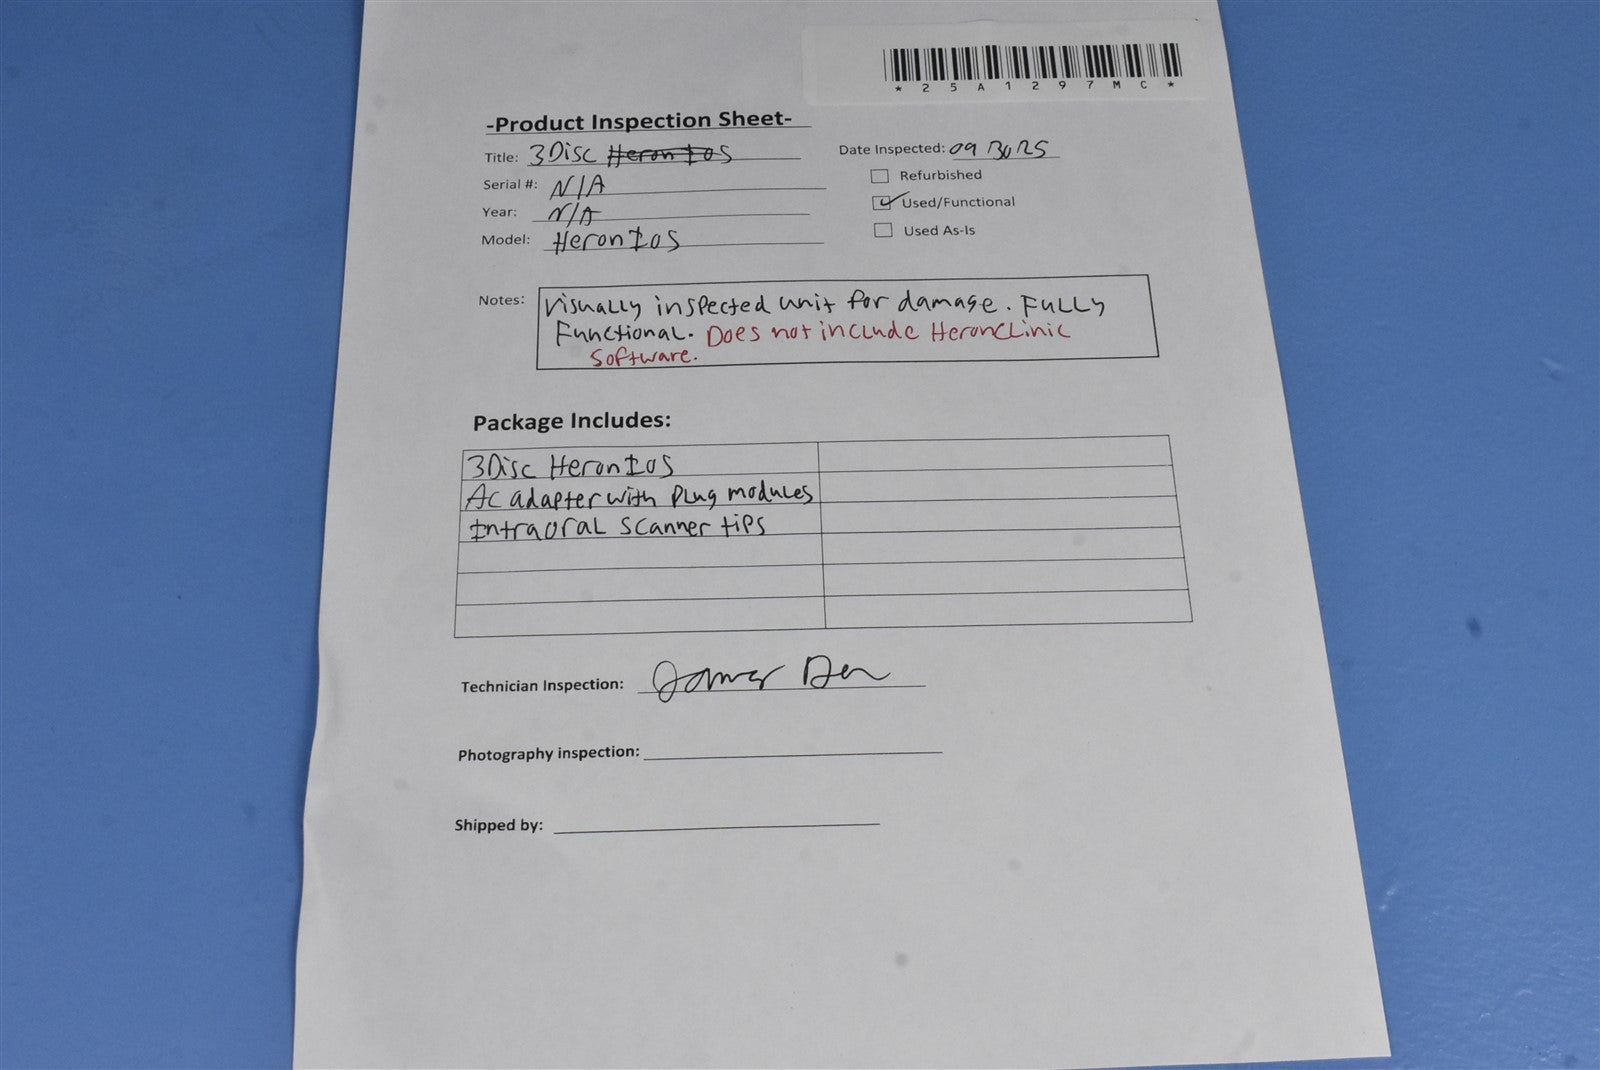 *25A1297MC*
-Product Inspection Sheet-
Title: 3Disc Heron IOS
Date Inspected: 09 30 25
Serial #: N/A
Refurbished
Year: N/A
Used/Functional
Model: Heron IOS
Used As-Is
Notes: Visually inspected unit for damage. Fully
Functional. Does not include HeronClinic
Software.
Package Includes:
3Disc Heron IOS
AC adapter with plug modules
Intraoral scanner tips
Technician Inspection:
Photography inspection:
Shipped by: